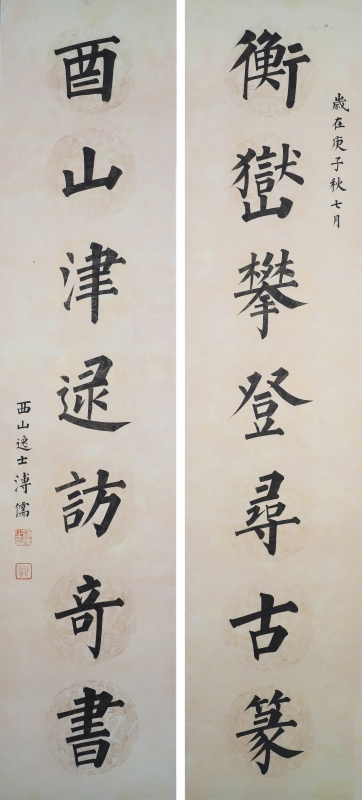 歲在庚子秋七月
衡嶽攀登尋古篆
酉山津逮訪奇書
西山逸士溥儒